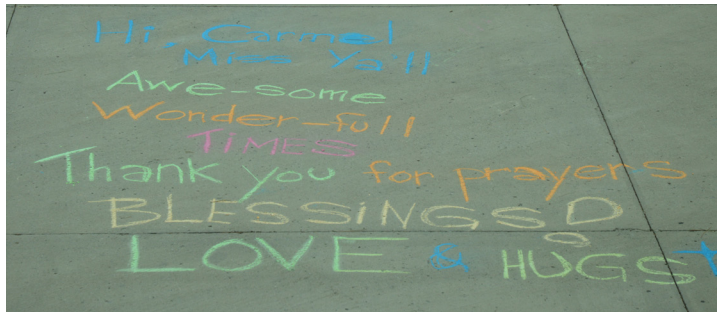 Hi, Carmel
Miss Ya'll
Awe-some
Wonder-full
TIMES
Thank you for prayers
BLESSINGS
LOVE & HUGS